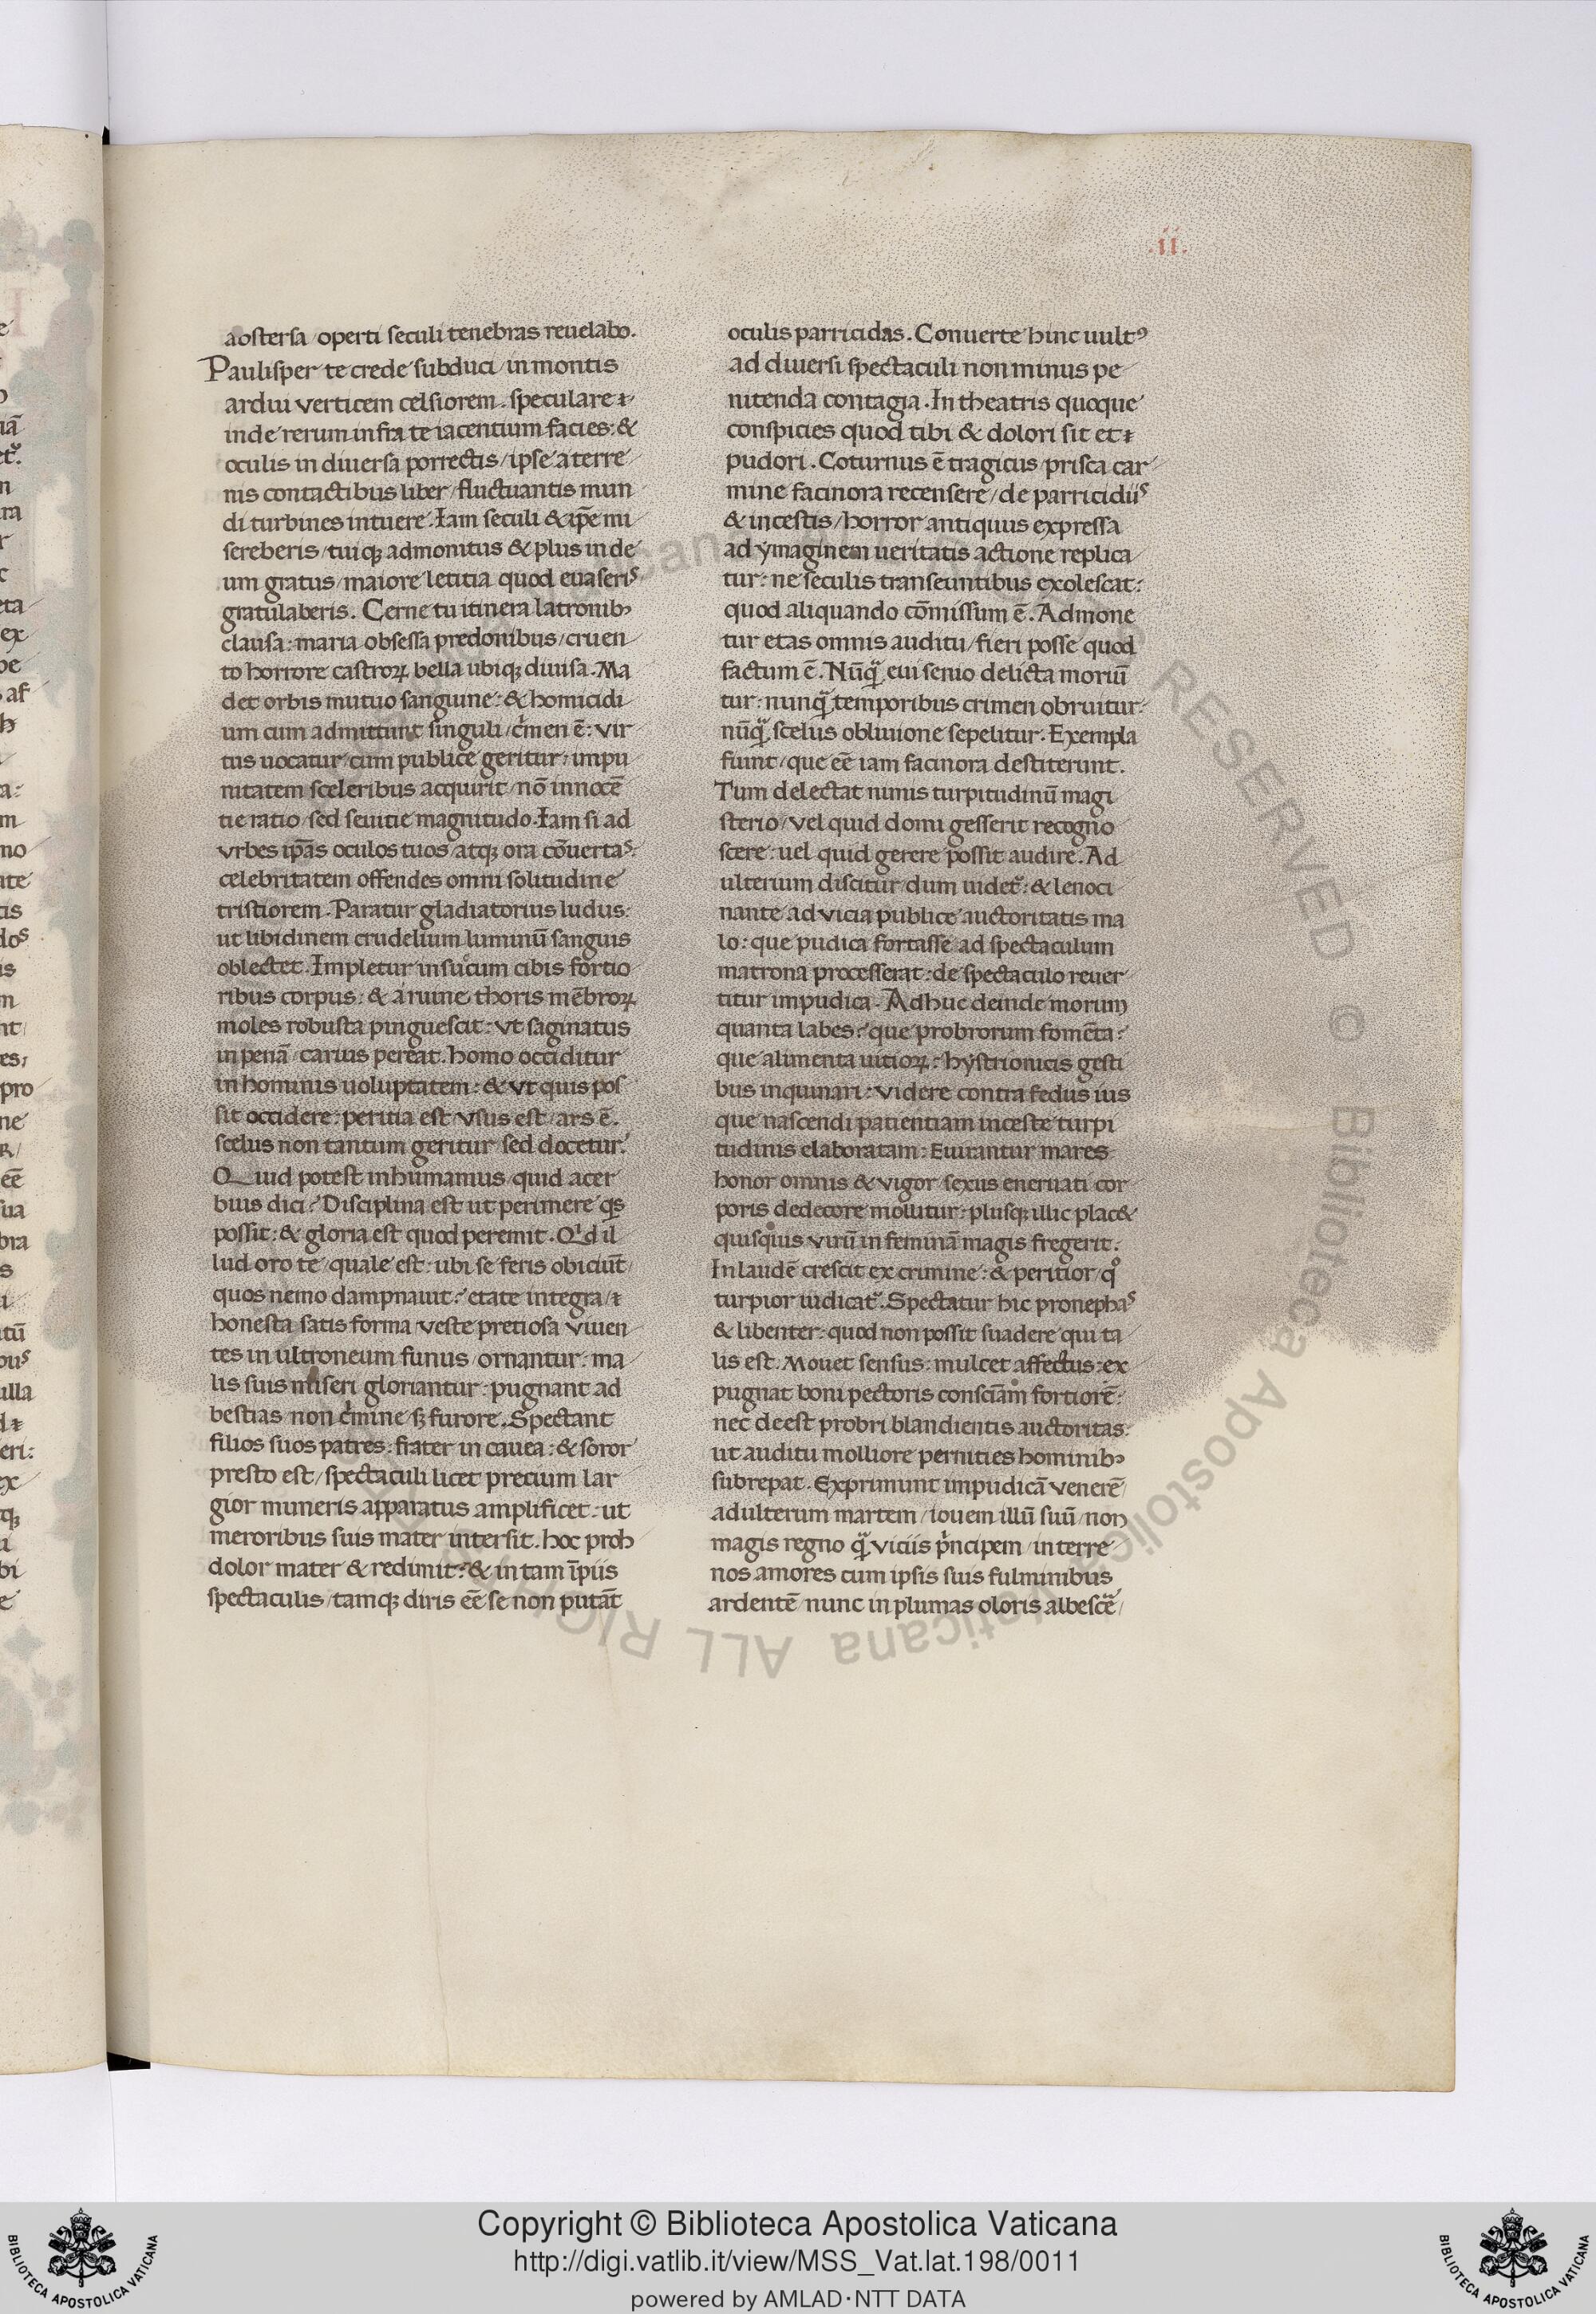 .ii.
aostersa / operti seculi tenebras reuelabo.
Paulisper te crede subduci / in montis
ardui verticem celsiorem. speculare ⁊
inde rerum infra te iacentium facies: &
oculis in diuersa porrectis / ipse a terre
nis contactibus liber / fluctuantis mun
di turbines intuere. Iam seculi & ip̄e mi
sereberis / tuiqꝫ admonitus & plus in de
um gratus / maiore letitia quod euaseriˢ
gratulaberis. Cerne tu itinera latronibꝫ
clausa: maria obsessa predonibus / cruen
to horrore castroꝝ bella ubiqꝫ diuisa. Ma
det orbis mutuo sanguine: & homicidi
um cum admittunt singuli / cⁱmen ē: vir
tus uocatur / cum publice geritur: impu
nitatem sceleribus acquirit / nō innocē
tie ratio / sed seuitie magnitudo. Iam si ad
vrbes ip̄as oculos tuos / atqꝫ ora cōuertaˢ:
celebritatem offendes omni solitudine
tristiorem. Paratur gladiatorius ludus:
ut libidinem crudelium luminū sanguis
oblectet. Impletur in sucum cibis fortio
ribus corpus: & aruine thoris mēbroꝝ
moles robusta pinguescit: vt saginatus
in penā / carius pereat. homo occiditur
in hominis uoluptatem: & vt quis pos
sit occidere: peritia est / vsus est / ars ē.
scelus non tantum geritur / sed docetur.
Quid potest inhumanius / quid acer
bius dici? Disciplina est ut perimere qͥs
possit: & gloria est quod peremit. Qⁱd il
lud oro te / quale est: ubi se feris obiciūt /
quos nemo dampnauit? etate integra / ⁊
honesta satis forma / veste pretiosa viuen
tes in ultroneum funus / ornantur: ma
lis suis miseri gloriantur: pugnant ad
bestias / non cⁱmine / sꝫ furore. Spectant
filios suos patres: frater in cauea: & soror
presto est / spectaculi licet precium lar
gior muneris apparatus amplificet: ut
meroribus suis mater intersit. hoc proh
dolor mater & redimit? & in tam īpiis
spectaculis / tamqꝫ diris eē se non putāt
oculis parricidas. Conuerte hinc uultꝰ
ad diuersi spectaculi non minus pe
nitenda contagia. In theatris quoque
conspicies quod tibi & dolori sit et ⁊
pudori. Coturnus ē tragicus / prisca car
mine facinora recensere / de parricidiiˢ
& incestis / horror antiquus expressa
ad ymaginem ueritatis actione replica
tur: ne seculis transeuntibus exolescat:
quod aliquando cōmissum ē. Admone
tur etas omnis auditu / fieri posse quod
factum ē. Nūqͣ eui senio delicta moriū
tur: nunqͣ temporibus crimen obruitur:
nūqͣ scelus obliuione sepelitur. Exempla
fiunt / que eē iam facinora destiterunt.
Tum delectat nimis turpitudinū magi
sterio / vel quid domi gesserit recogno
scere: uel quid gerere possit audire. Ad
ulterium discitur dum uidetᷣ: & lenoci
nante ad vicia publice auctoritatis ma
lo: que pudica fortasse ad spectaculum
matrona processerat: de spectaculo reuer
titur impudica. Adhuc deinde morum
quanta labes? que probrorum fomēta?
que alimenta uitioꝝ: hystrionicis gesti
bus inquinari: videre contra fedus ius
que nascendi patientiam inceste turpi
tudinis elaboratam: Euirantur mares
honor omnis & vigor / sexus eneruati cor
poris dedecore mollitur: plusqꝫ illic plac&
quisquis virū in feminā magis fregerit:
In laudē crescit ex crimine: & peritior / qᵒ
turpior iudicatᷣ. Spectatur hic pro nephaˢ
& libenter: quod non possit suadere qui ta
lis est. Mouet sensus: mulcet affectus: ex
pugnat boni pectoris consciam fortiorē:
nec deest probri blandientis auctoritas:
ut auditu molliore pernities hominibꝫ
subrepat. Exprimunt impudicā venerē /
adulterum martem / iouem illū suū / non
magis regno qͣ viciis pⁱncipem / in terre
nos amores cum ipsis suis fulminibus
ardentē / nunc in plumas oloris albescē̆ /
Copyright © Biblioteca Apostolica Vaticana
http://digi.vatlib.it/view/MSS_Vat.lat.198/0011
powered by AMLAD·NTT DATA
BIBLIOTECA APOSTOLICA VATICANA
BIBLIOTECA APOSTOLICA VATICANA